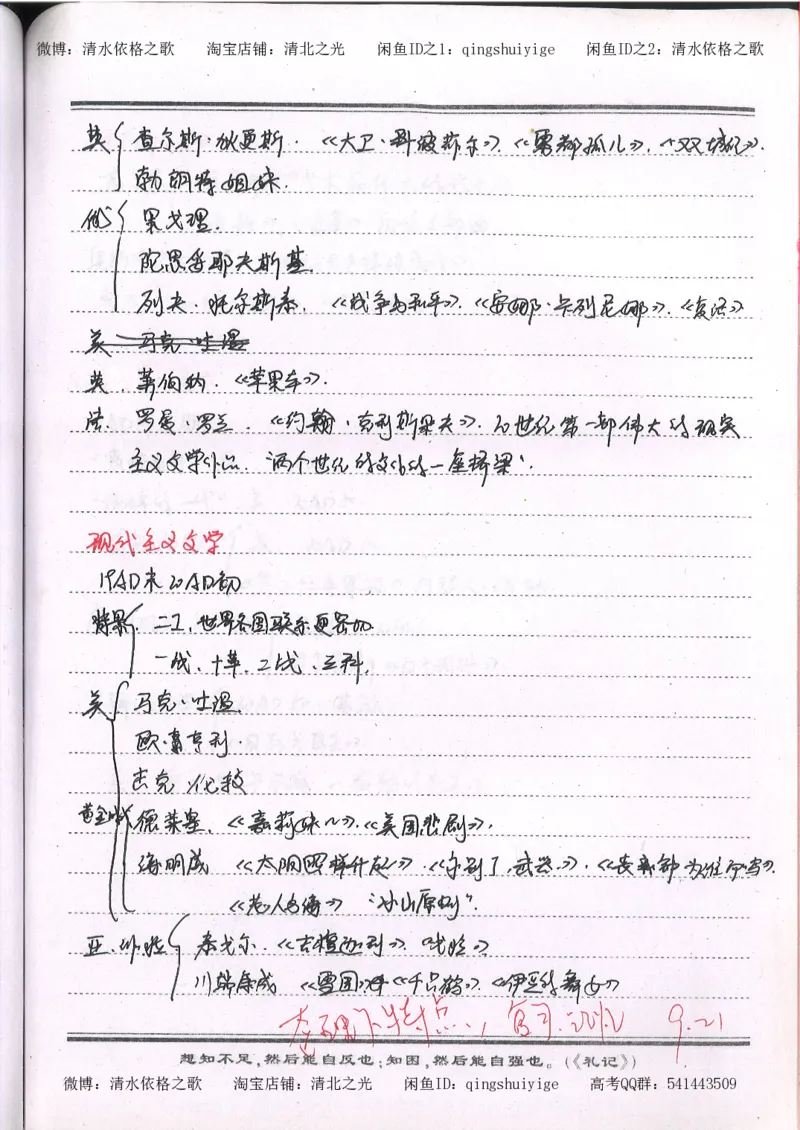 微博：清水依格之歌 淘宝店铺：清北之光 闲鱼ID之1：qingshuiyige 闲鱼ID之2：清水依格之歌
英 查尔斯·狄更斯. 《大卫·科波菲尔》.《雾都孤儿》.《双城记》.
勃朗特姐妹.
俄 果戈理.
陀思妥耶夫斯基.
列夫·托尔斯泰. 《战争与和平》.《安娜·卡列尼娜》.《复活》
美 马克·吐温
英. 萧伯纳.《苹果车》.
法. 罗曼·罗兰. 《约翰·克利斯朵夫》. 20世纪第一部伟大的现实
主义文学作品. “两个世纪的文化的一座桥梁”.
现代主义文学
19AD末20AD初
背景. 二工. 世界各国联系更密切
一战、十革、二战、三科.
美 马克·吐温.
欧·亨利.
杰克·伦敦
黄金时代 德莱塞. 《嘉莉妹妹》.《美国悲剧》.
海明威 《太阳照样升起》.《永别了,武器》.《丧钟为谁而鸣》.
《老人与海》 “冰山原则”.
亚. 泰戈尔. 《吉檀迦利》
川端康成 《雪国》《千只鹤》.《伊豆的舞女》
整理下特点, 复习 9.21
想知不足,然后能自反也;知困,然后能自强也。(《礼记》)
微博：清水依格之歌 淘宝店铺：清北之光 闲鱼ID：qingshuiyige 高考QQ群：541443509